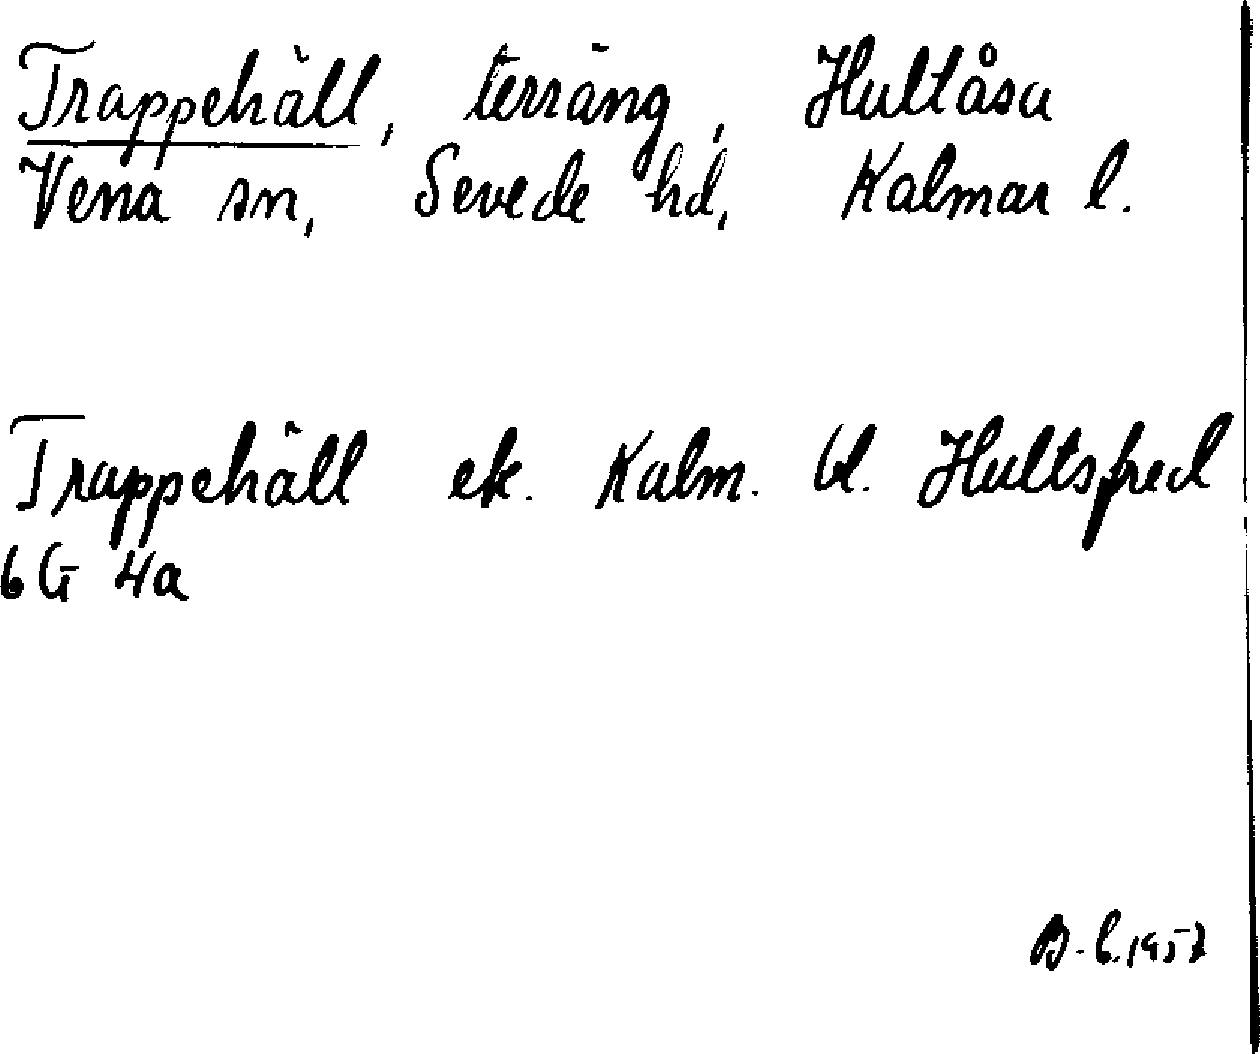 Trappehäll, terräng, Hultåsa
Vena sn, Sevede hd, Kalmar l.
Trappehäll ek. Kalm. bl. Hultsfred
6G 4a
B-b. 1957